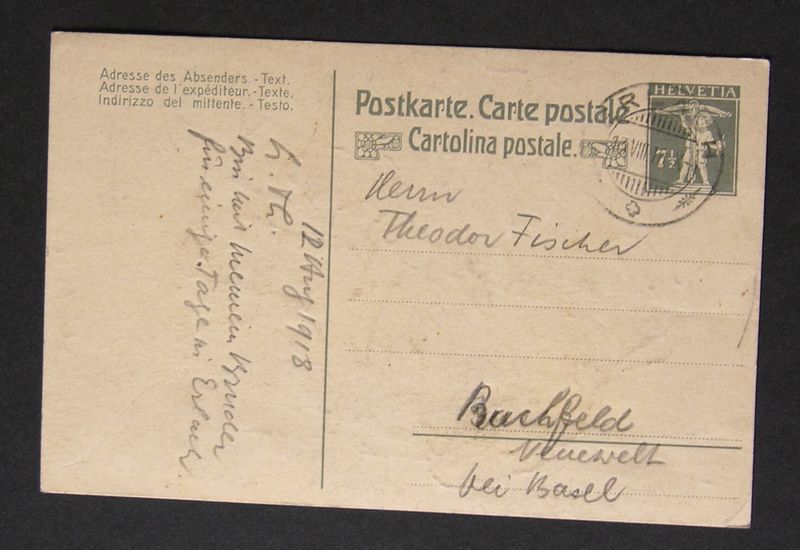 Adresse des Absenders. - Text.
Adresse de l'expéditeur. - Texte.
Indirizzo del mittente. - Testo.
Postkarte. Carte postale
Cartolina postale.
HELVETIA
7½
R
VIII
12 Aug 1918
L. Th.
Bin mit meinem Bruder
für einige Tage in Erlach
Herrn
Theodor Fischer
Buchfeld
Neuewelt
bei Basel